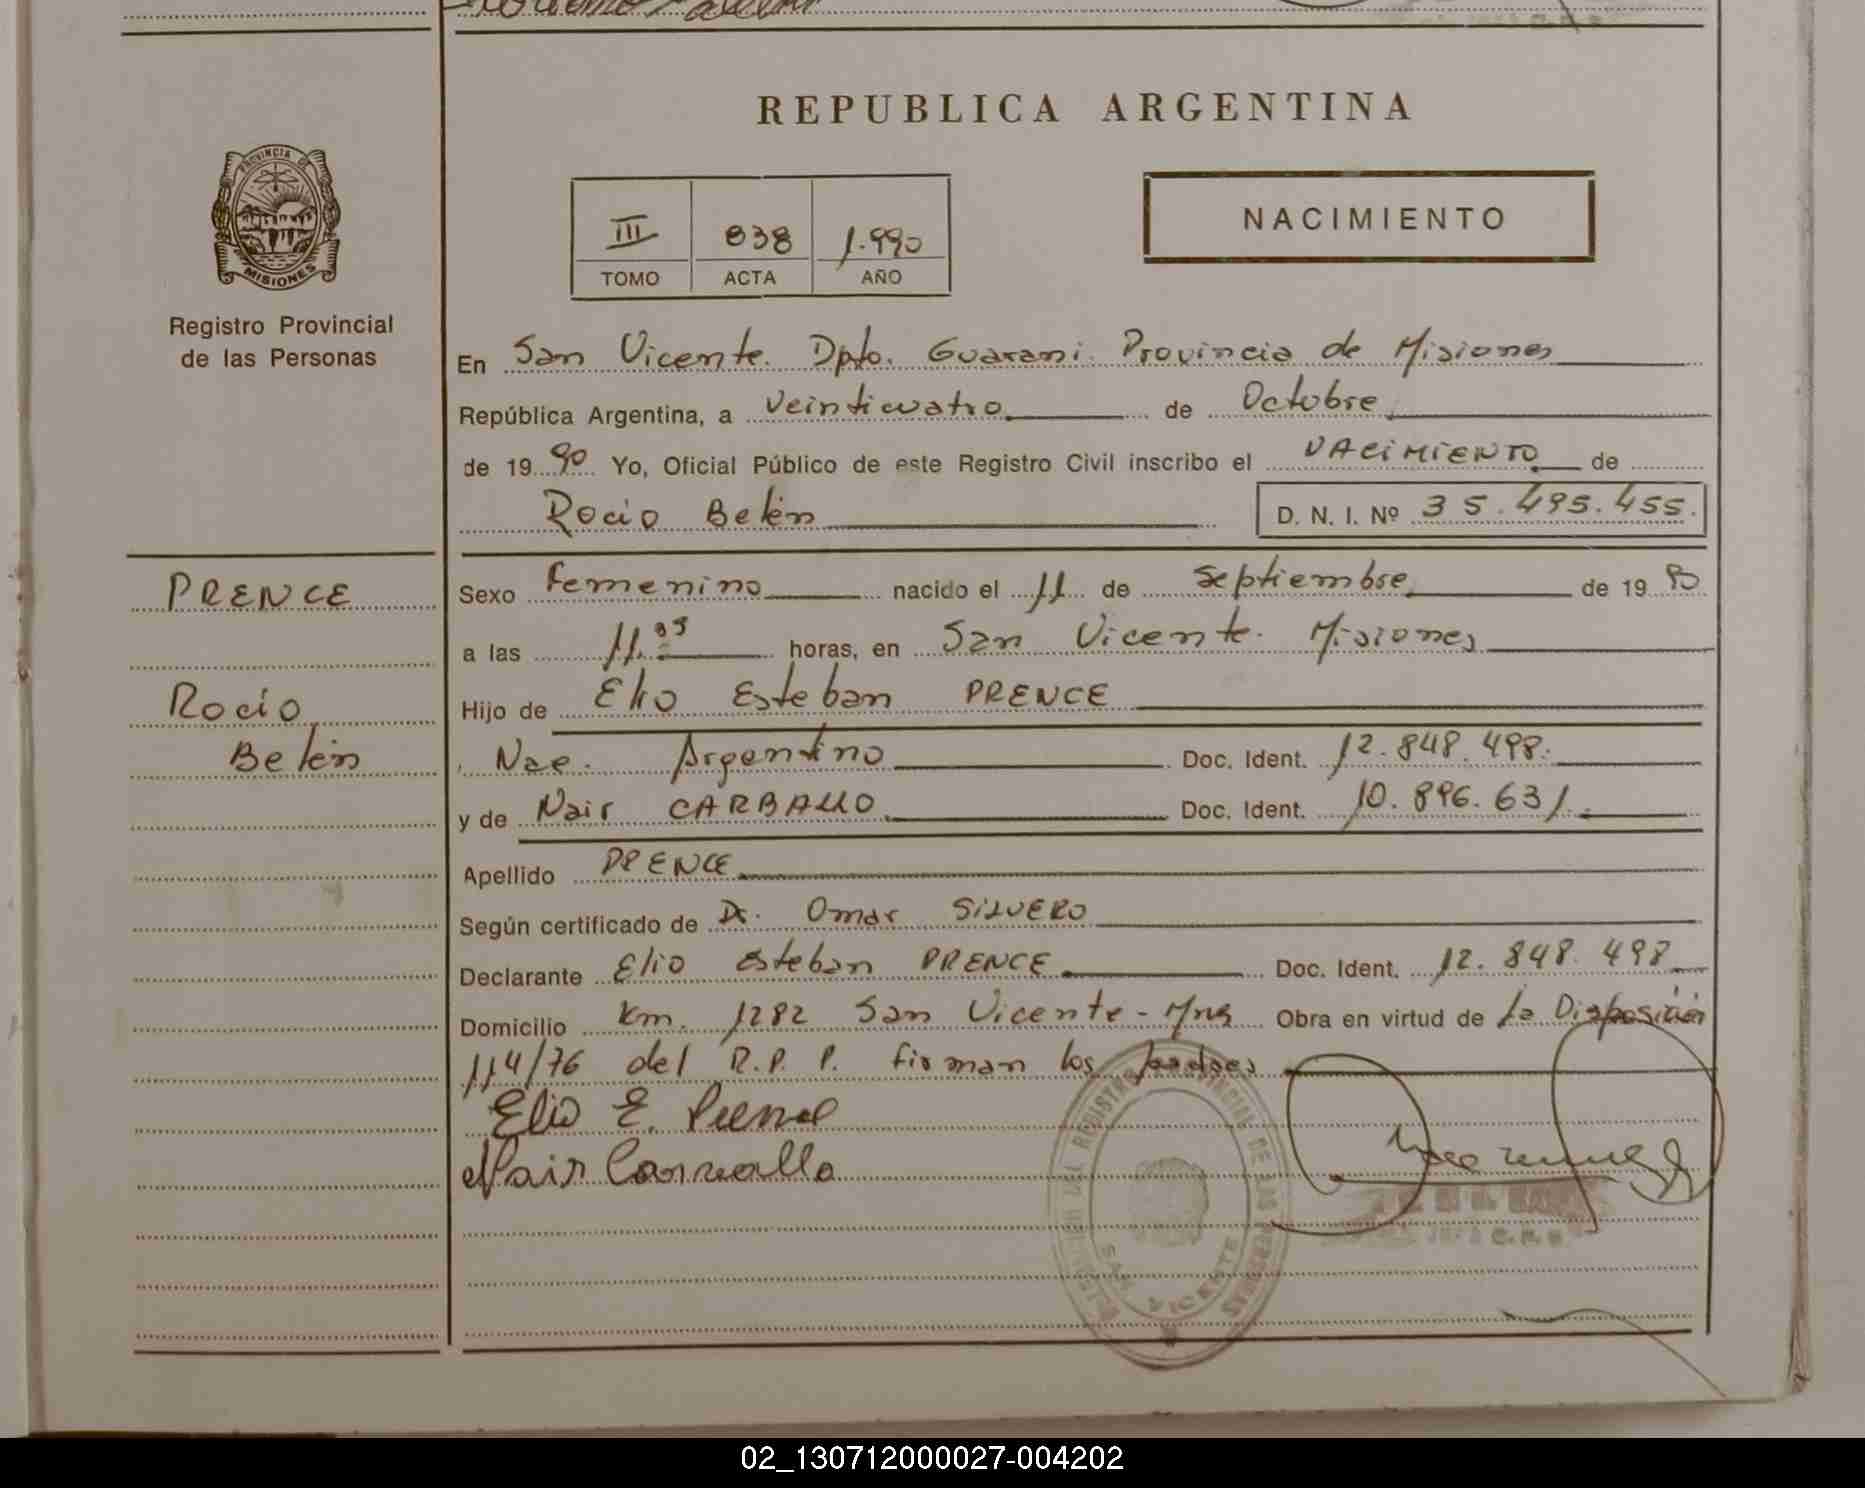 REPUBLICA ARGENTINA
PROVINCIA DE
MISIONES
Registro Provincial
de las Personas
III 838 1.990
TOMO ACTA AÑO
NACIMIENTO
En San Vicente. Dpto. Guarani. Provincia de Misiones
República Argentina, a Veinticuatro de Octubre
de 19 90 Yo, Oficial Público de este Registro Civil inscribo el NACIMIENTO de
Rocio Belén D. N. I. Nº 35.495.455.
PRENCE
Rocío
Belén
Sexo Femenino nacido el 11 de Septiembre de 19 90
a las 11.35 horas, en San Vicente. Misiones
Hijo de Elio Esteban PRENCE
Nac. Argentino Doc. Ident. 12.848.498.
y de Nair CARBALLO Doc. Ident. 10.896.631.
Apellido PRENCE
Según certificado de Dr. Omar SILVERO
Declarante Elio Esteban PRENCE Doc. Ident. 12.848.498
Domicilio Km. 1282 San Vicente - Mns Obra en virtud de La Disposición
114/76 del R.P.P. firman los padres
Elio E. Prence
Nair Carvallo
REGISTRO PROVINCIAL DE LAS PERSONAS
SAN VICENTE
02_130712000027-004202